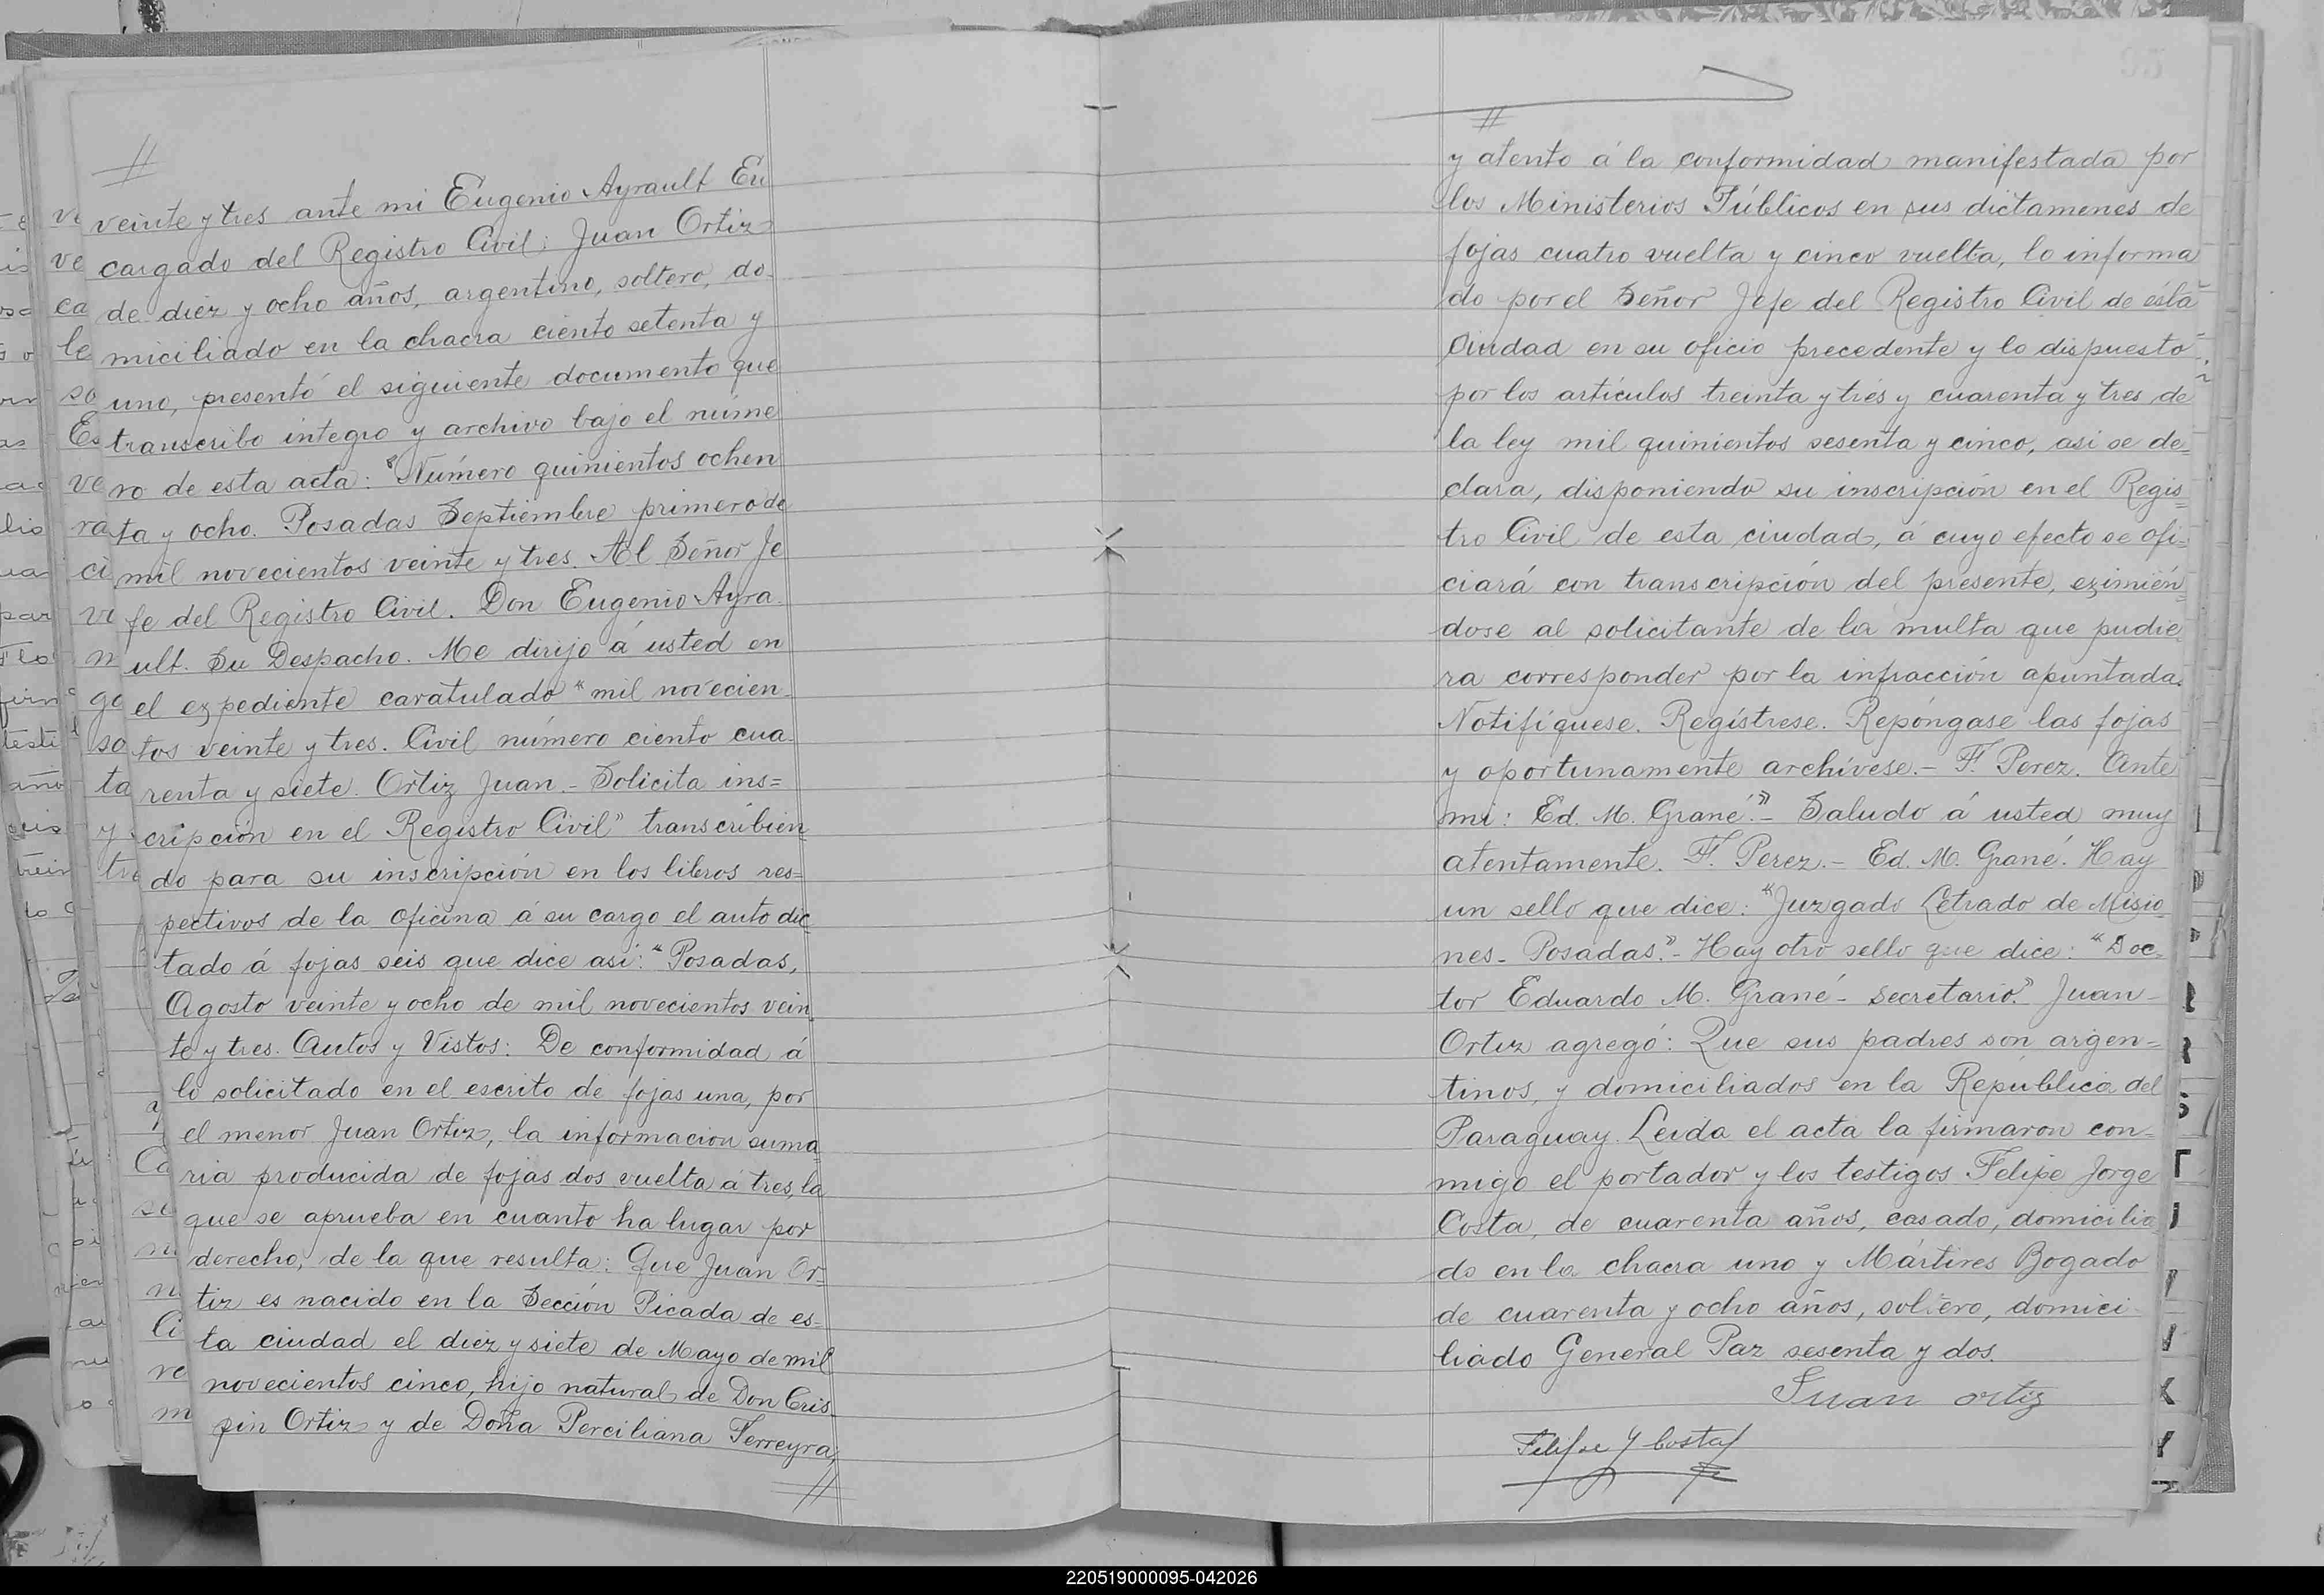 //
veinte y tres ante mi Eugenio Ayrault En
cargado del Registro Civil: Juan Ortiz
de diez y ocho años, argentino, soltero, do-
miciliado en la chacra ciento setenta y
uno, presentó el siguiente documento que
transcribo integro y archivo bajo el núme
ro de esta acta: "Número quinientos ochen
ta y ocho. Posadas Septiembre primero de
mil novecientos veinte y tres. Al Señor Je
fe del Registro Civil. Don Eugenio Ayra-
ult. Su Despacho. Me dirijo á usted en
el expediente caratulado "mil novecien-
tos veinte y tres. Civil número ciento cua-
renta y siete. Ortiz Juan.- Solicita ins=
cripción en el Registro Civil" transcribien
do para su inscripción en los libros res=
pectivos de la oficina á su cargo el auto dic
tado á fojas seis que dice asi: "Posadas,
Agosto veinte y ocho de mil novecientos vein
te y tres. Autos y Vistos: De conformidad á
lo solicitado en el escrito de fojas una, por
el menor Juan Ortiz, la informacion suma
ria producida de fojas dos vuelta á tres, la
que se aprueba en cuanto ha lugar por
derecho, de la que resulta: Que Juan Or-
tiz es nacido en la Sección Picada de es-
ta ciudad el diez y siete de Mayo de mil
novecientos cinco, hijo natural de Don Cris-
pin Ortiz y de Doña Perciliana Ferreyra,
//
//
y atento á la conformidad manifestada por
los Ministerios Públicos en sus dictamenes de
fojas cuatro vuelta y cinco vuelta, lo informa
do por el Señor Jefe del Registro Civil de ésta
Ciudad en su oficio precedente y lo dispuesto
por los artículos treinta y trés y cuarenta y tres de
la ley mil quinientos sesenta y cinco, asi se de=
clara, disponiendo su inscripción en el Regis
tro Civil de esta ciudad, á cuyo efecto se ofi-
ciará con transcripción del presente, eximién
dose al solicitante de la multa que pudie
ra corresponder por la infracción apuntada.
Notifíquese. Regístrese. Repóngase las fojas
y oportunamente archívese.- F. Perez. Ante
mi: Ed. M. Grané."- Saludo á usted muy
atentamente. F. Perez.- Ed. M. Grané. Hay
un sello que dice: "Juzgado Letrado de Misio
nes- Posadas."- Hay otro sello que dice: "Doc-
tor Eduardo M. Grané- Secretario." Juan-
Ortiz agregó: Que sus padres son argen-
tinos, y domiciliados en la República del
Paraguay. Leida el acta la firmaron con-
migo el portador y los testigos Felipe Jorge
Costa, de cuarenta años, casado, domicilia
do en la chacra uno y Mártires Bogado
de cuarenta y ocho años, soltero, domici-
liado General Paz sesenta y dos.
Juan ortiz
Felipe J Costa
220519000095-042026